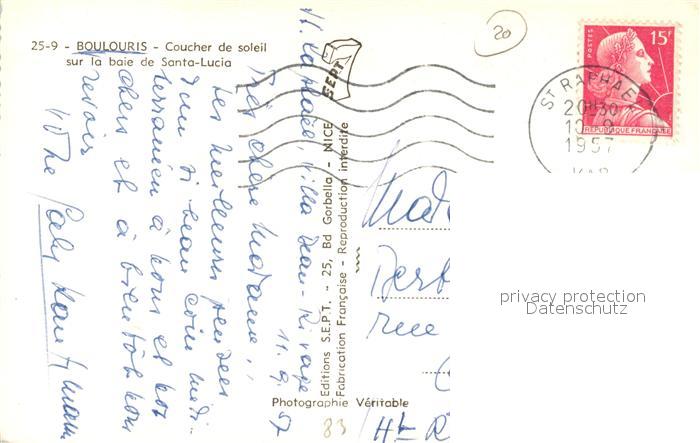 25-9 - BOULOURIS - Coucher de soleil
sur la baie de Santa-Lucia
20
SEPT
POSTES
15F
REPUBLIQUE FRANÇAISE
ST RAPHAEL
20H30
1957
VAR
St. Raphaël, Villa Jean-Rivage
11.9.57
Très chère Madame!!
Les meilleures pensées
d'un si beau coin médi-
terranéen à vous et vos
chers et à bientôt vous
revoir
Votre
Editions S.E.P.T. - 25, Bd Gorbella - NICE
Fabrication Française - Reproduction interdite
Photographie Véritable
83
Mada
rue
Ht R
privacy protection
Datenschutz